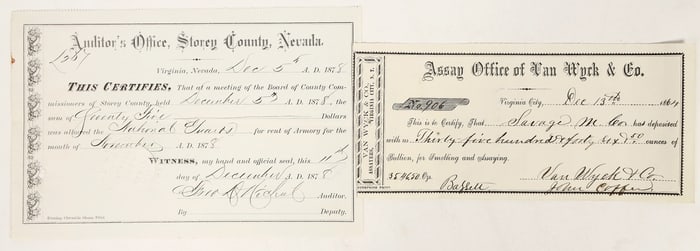 Auditor's Office, Storey County, Nevada.
Virginia, Nevada, Dec 5th A. D. 1878
THIS CERTIFIES, That at a meeting of the Board of County Com-
missioners of Storey County, held December 5th 1878, the
sum of Twenty Five Dollars
was allowed the National Guard for rent of Armory for the
month of November A. D. 1878
WITNESS, my hand and official seal, this 11th
day of December A. D. 1878
Auditor.
By Deputy.
Evening Chronicle Steam Print.
VAN WYCK & CO.
VIRGINIA CITY, N. T.
ASSAYERS,
Assay Office of Van Wyck & Co.
No. 906 Virginia City, Dec 13th 1864
This is to Certify, That Savage M. Co has deposited
with us Thirty five hundred & forty six & 50 ounces of
Bullion, for Smelting and Assaying.
3546.50 Oz. Van Wyck & Co.
John